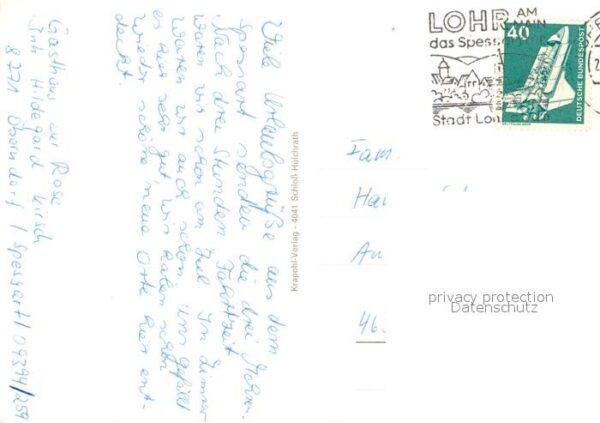 Viele Urlaubsgrüße aus dem
Spessart senden die drei
Nach drei Stunden Fahrtzeit
waren wir schon am Ziel. In
waren wir auch schon. Uns gefällt
es hier sehr gut, wir haben schon
wieder schöne neue Orte hier ent-
deckt.
Gasthaus zur Rose
Inh Hildegard Kirsch
8771 Oberndorf / Spessart / 09394/259
Krapohl-Verlag - 4041 Schloß Hülchrath
LOHR AM MAIN
das Spess
Stadt Lo
40
DEUTSCHE BUNDESPOST
Fam.
Ha
Am
46
privacy protection
Datenschutz